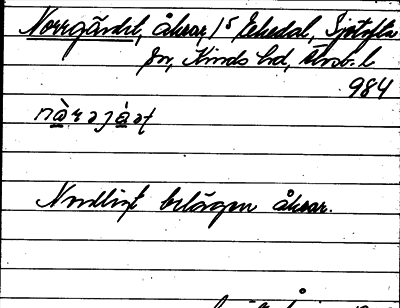 Norrgärdet, åkrar, 1⁵ Ekedal, Sjötofta
sn, Kinds hd, Älvsb. l.
984
Nordligt belägen åkrar.